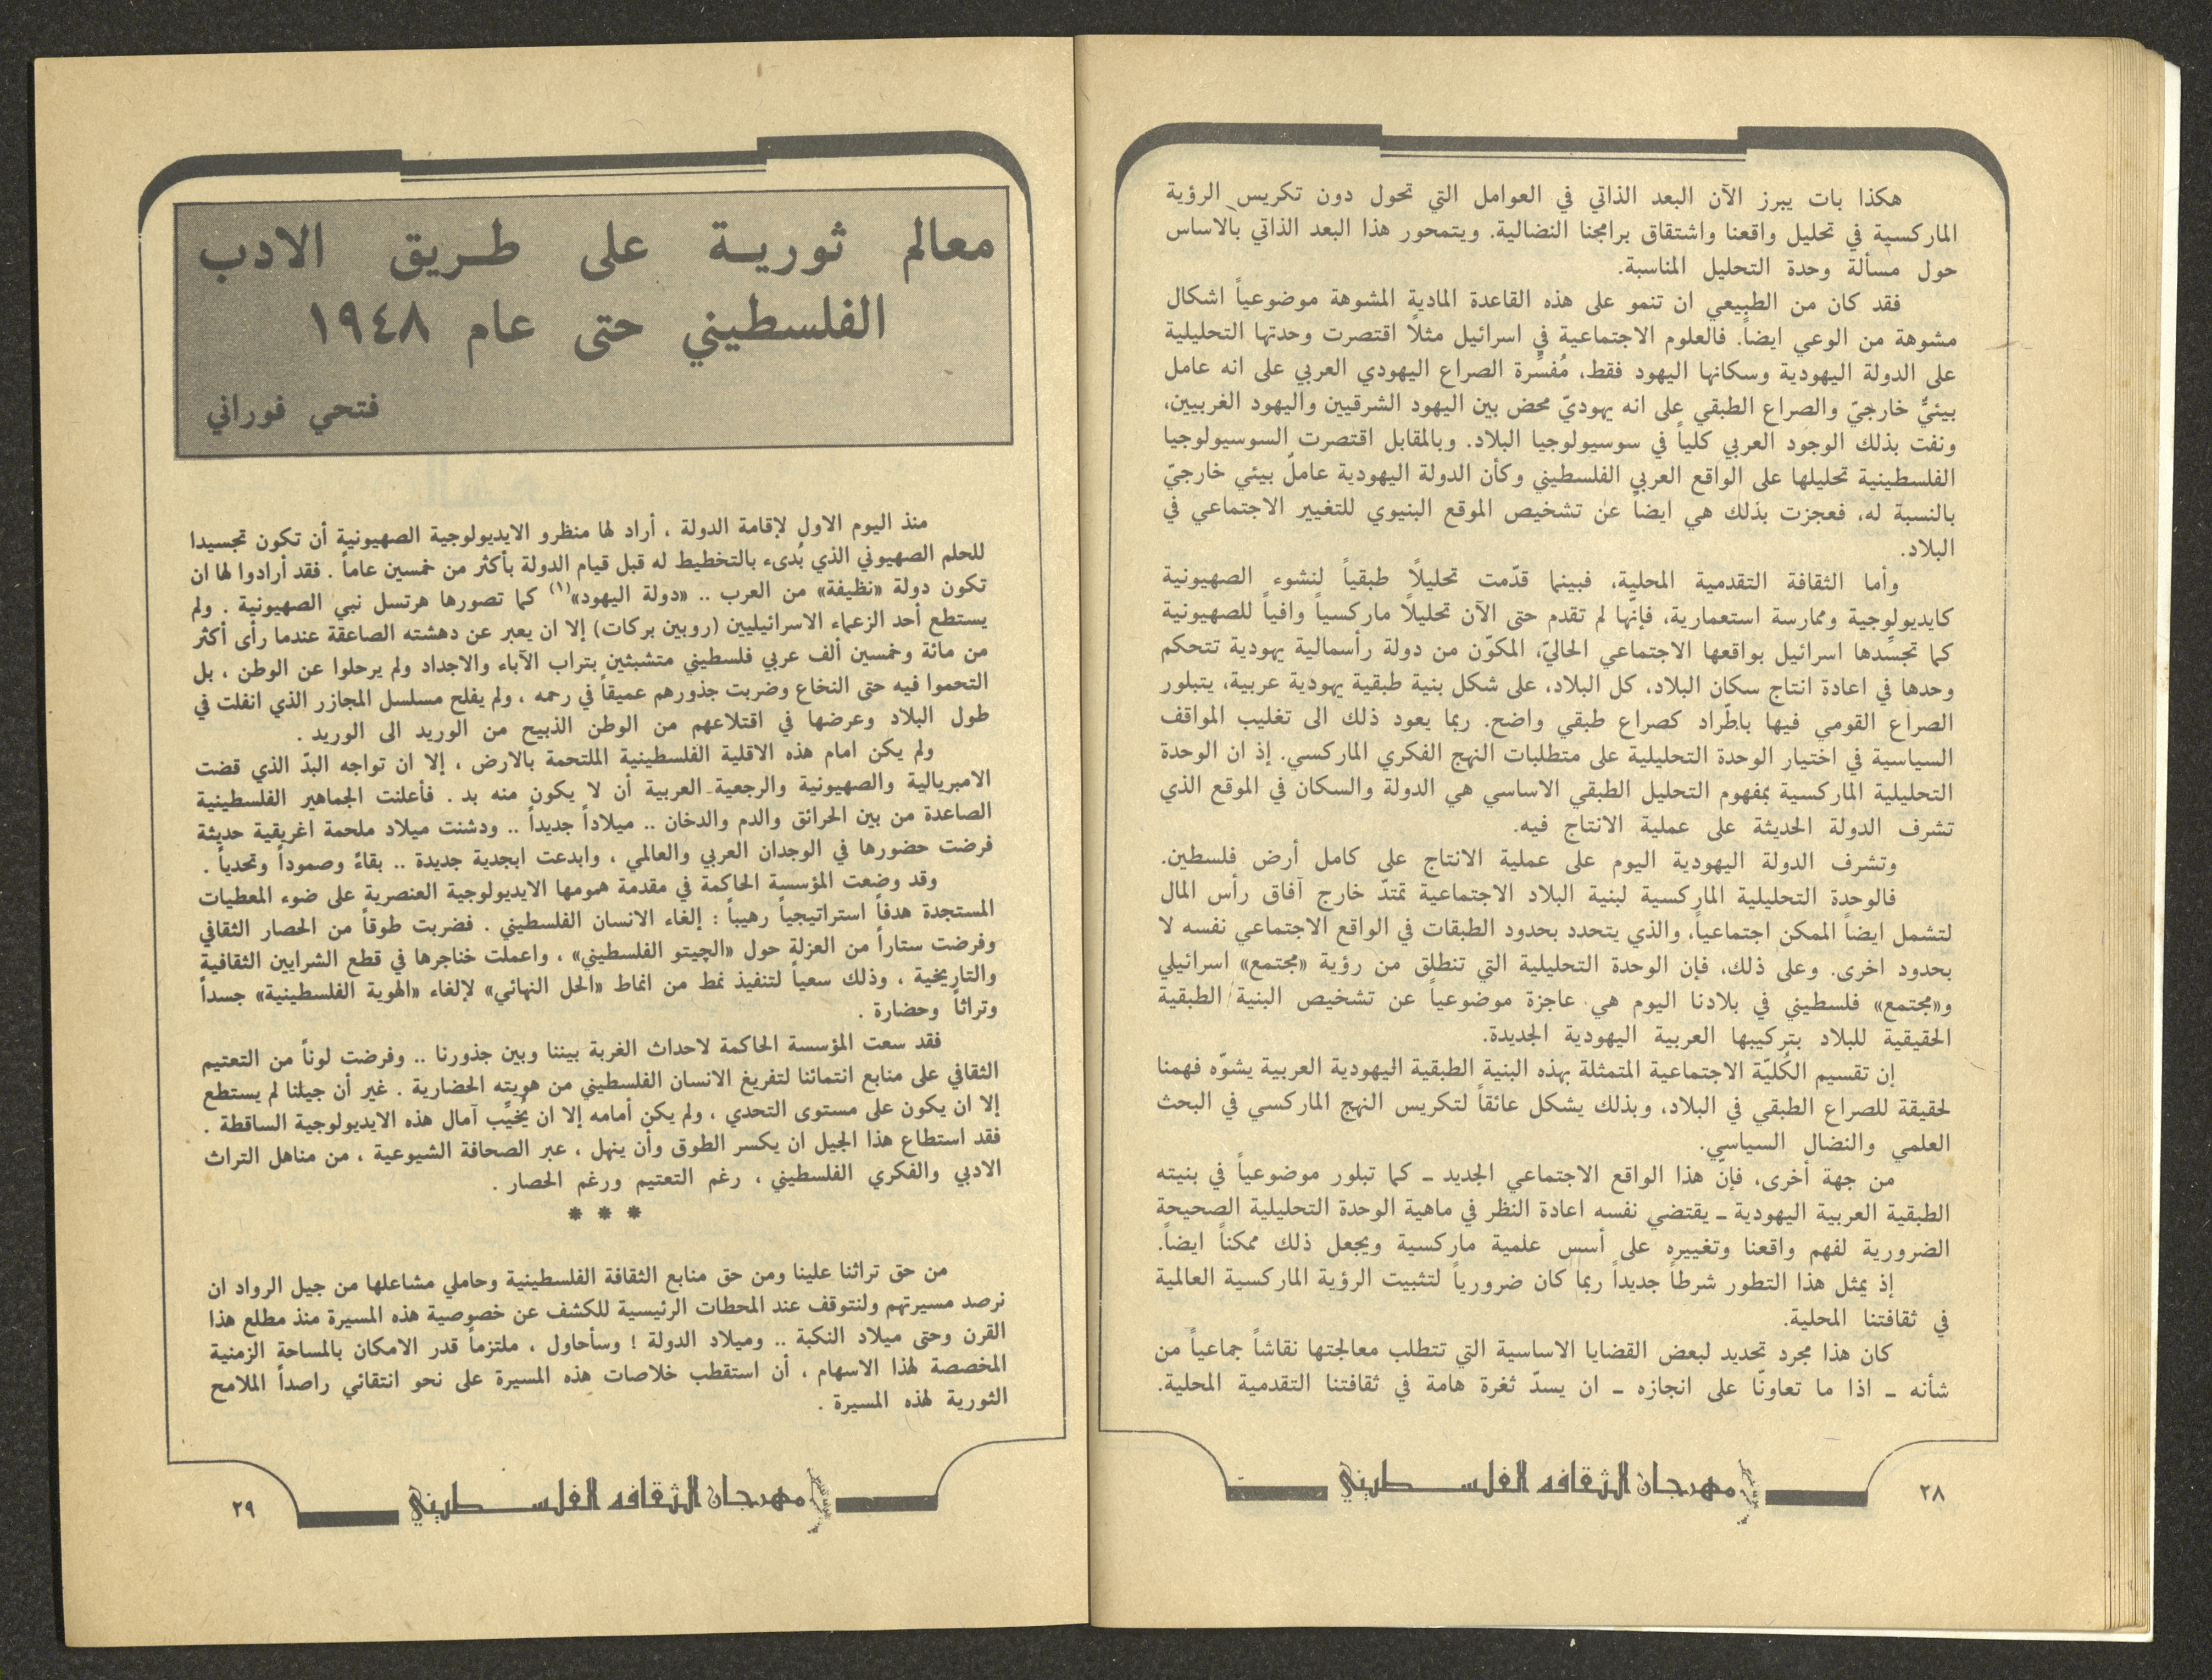 هكذا بات يبرز الآن البعد الذاتي في العوامل التي تحول دون تكريس الرؤية
الماركسية في تحليل واقعنا واشتقاق برامجنا النضالية. ويتمحور هذا البعد الذاتي بالاساس
حول مسألة وحدة التحليل المناسبة.
فقد كان من الطبيعي ان تنمو على هذه القاعدة المادية المشوهة موضوعياً اشكال
مشوهة من الوعي ايضاً. فالعلوم الاجتماعية في اسرائيل مثلًا اقتصرت وحدتها التحليلية
على الدولة اليهودية وسكانها اليهود فقط، مُفسِّرة الصراع اليهودي العربي على انه عامل
بيئيٌّ خارجيّ والصراع الطبقي على انه يهوديّ محض بين اليهود الشرقيين واليهود الغربيين،
ونفت بذلك الوجود العربي كلياً في سوسيولوجيا البلاد. وبالمقابل اقتصرت السوسيولوجيا
الفلسطينية تحليلها على الواقع العربي الفلسطيني وكأن الدولة اليهودية عاملٌ بيئي خارجيّ
بالنسبة له، فعجزت بذلك هي ايضاً عن تشخيص الموقع البنيوي للتغيير الاجتماعي في
البلاد.
وأما الثقافة التقدمية المحلية، فبينما قدّمت تحليلًا طبقياً لنشوء الصهيونية
كايديولوجية وممارسة استعمارية، فإنّها لم تقدم حتى الآن تحليلًا ماركسياً وافياً للصهيونية
كما تجسّدها اسرائيل بواقعها الاجتماعي الحاليّ، المكوّن من دولة رأسمالية يهودية تتحكم
وحدها في اعادة انتاج سكان البلاد، كل البلاد، على شكل بنية طبقية يهودية عربية، يتبلور
الصراع القومي فيها باطّراد كصراع طبقي واضح. ربما يعود ذلك الى تغليب المواقف
السياسية في اختيار الوحدة التحليلية على متطلبات النهج الفكري الماركسي. إذ ان الوحدة
التحليلية الماركسية بمفهوم التحليل الطبقي الاساسي هي الدولة والسكان في الموقع الذي
تشرف الدولة الحديثة على عملية الانتاج فيه.
وتشرف الدولة اليهودية اليوم على عملية الانتاج على كامل أرض فلسطين.
فالوحدة التحليلية الماركسية لبنية البلاد الاجتماعية تمتدّ خارج آفاق رأس المال
لتشمل ايضاً الممكن اجتماعياً، والذي يتحدد بحدود الطبقات في الواقع الاجتماعي نفسه لا
بحدود اخرى. وعلى ذلك، فإن الوحدة التحليلية التي تنطلق من رؤية «مجتمع» اسرائيلي
و«مجتمع» فلسطيني في بلادنا اليوم هي عاجزة موضوعياً عن تشخيص البنية الطبقية
الحقيقية للبلاد بتركيبها العربية اليهودية الجديدة.
إن تقسيم الكُليّة الاجتماعية المتمثلة بهذه البنية الطبقية اليهودية العربية يشوّه فهمنا
لحقيقة للصراع الطبقي في البلاد، وبذلك يشكل عائقاً لتكريس النهج الماركسي في البحث
العلمي والنضال السياسي.
من جهة أخرى، فإنّ هذا الواقع الاجتماعي الجديد ـ كما تبلور موضوعياً في بنيته
الطبقية العربية اليهودية ـ يقتضي نفسه اعادة النظر في ماهية الوحدة التحليلية الصحيحة
الضرورية لفهم واقعنا وتغييره على أسس علمية ماركسية ويجعل ذلك ممكناً ايضاً.
إذ يمثل هذا التطور شرطاً جديداً ربما كان ضرورياً لتثبيت الرؤية الماركسية العالمية
في ثقافتنا المحلية.
كان هذا مجرد تحديد لبعض القضايا الاساسية التي تتطلب معالجتها نقاشاً جماعياً من
شأنه ـ اذا ما تعاونّا على انجازه ـ ان يسدّ ثغرة هامة في ثقافتنا التقدمية المحلية.
مهرجان الثقافه الفلسـطيني
٢٨
معالم ثوريـة على طـريق الادب
الفلسطيني حتى عام ١٩٤٨
فتحي فوراني
منذ اليوم الاول لإقامة الدولة ، أراد لها منظرو الايديولوجية الصهيونية أن تكون تجسيدا
للحلم الصهيوني الذي بُدىء بالتخطيط له قبل قيام الدولة بأكثر من خمسين عاماً . فقد أرادوا لها ان
تكون دولة «نظيفة» من العرب .. «دولة اليهود»(١) كما تصورها هرتسل نبي الصهيونية . ولم
يستطع أحد الزعماء الاسرائيليين (روبين بركات) إلا ان يعبر عن دهشته الصاعقة عندما رأى أكثر
من مائة وخمسين ألف عربي فلسطيني متشبثين بتراب الآباء والاجداد ولم يرحلوا عن الوطن ، بل
التحموا فيه حتى النخاع وضربت جذورهم عميقاً في رحمه ، ولم يفلح مسلسل المجازر الذي انفلت في
طول البلاد وعرضها في اقتلاعهم من الوطن الذبيح من الوريد الى الوريد .
ولم يكن امام هذه الاقلية الفلسطينية الملتحمة بالارض ، إلا ان تواجه البدّ الذي قضت
الامبريالية والصهيونية والرجعية العربية أن لا يكون منه بد . فأعلنت الجماهير الفلسطينية
الصاعدة من بين الحرائق والدم والدخان .. ميلاداً جديداً .. ودشنت ميلاد ملحمة اغريقية حديثة
فرضت حضورها في الوجدان العربي والعالمي ، وابدعت ابجدية جديدة .. بقاءً وصموداً وتحدياً .
وقد وضعت المؤسسة الحاكمة في مقدمة همومها الايديولوجية العنصرية على ضوء المعطيات
المستجدة هدفاً استراتيجياً رهيباً : إلغاء الانسان الفلسطيني . فضربت طوقاً من الحصار الثقافي
وفرضت ستاراً من العزلة حول «الچيتو الفلسطيني» ، واعملت خناجرها في قطع الشرايين الثقافية
والتاريخية ، وذلك سعياً لتنفيذ نمط من انماط «الحل النهائي» لإلغاء «الهوية الفلسطينية» جسداً
وتراثاً وحضارة .
فقد سعت المؤسسة الحاكمة لاحداث الغربة بيننا وبين جذورنا .. وفرضت لوناً من التعتيم
الثقافي على منابع انتمائنا لتفريغ الانسان الفلسطيني من هويته الحضارية . غير أن جيلنا لم يستطع
إلا ان يكون على مستوى التحدي ، ولم يكن أمامه إلا ان يُخيِّب آمال هذه الايديولوجية الساقطة .
فقد استطاع هذا الجيل ان يكسر الطوق وأن ينهل ، عبر الصحافة الشيوعية ، من مناهل التراث
الادبي والفكري الفلسطيني ، رغم التعتيم ورغم الحصار .
* * *
من حق تراثنا علينا ومن حق منابع الثقافة الفلسطينية وحاملي مشاعلها من جيل الرواد ان
نرصد مسيرتهم ولنتوقف عند المحطات الرئيسية للكشف عن خصوصية هذه المسيرة منذ مطلع هذا
القرن وحتى ميلاد النكبة .. وميلاد الدولة ! وسأحاول ، ملتزماً قدر الامكان بالمساحة الزمنية
المخصصة لهذا الاسهام ، أن استقطب خلاصات هذه المسيرة على نحو انتقائي راصداً الملامح
الثورية لهذه المسيرة .
مهرجان الثقافه الفلسـطيني
٢٩